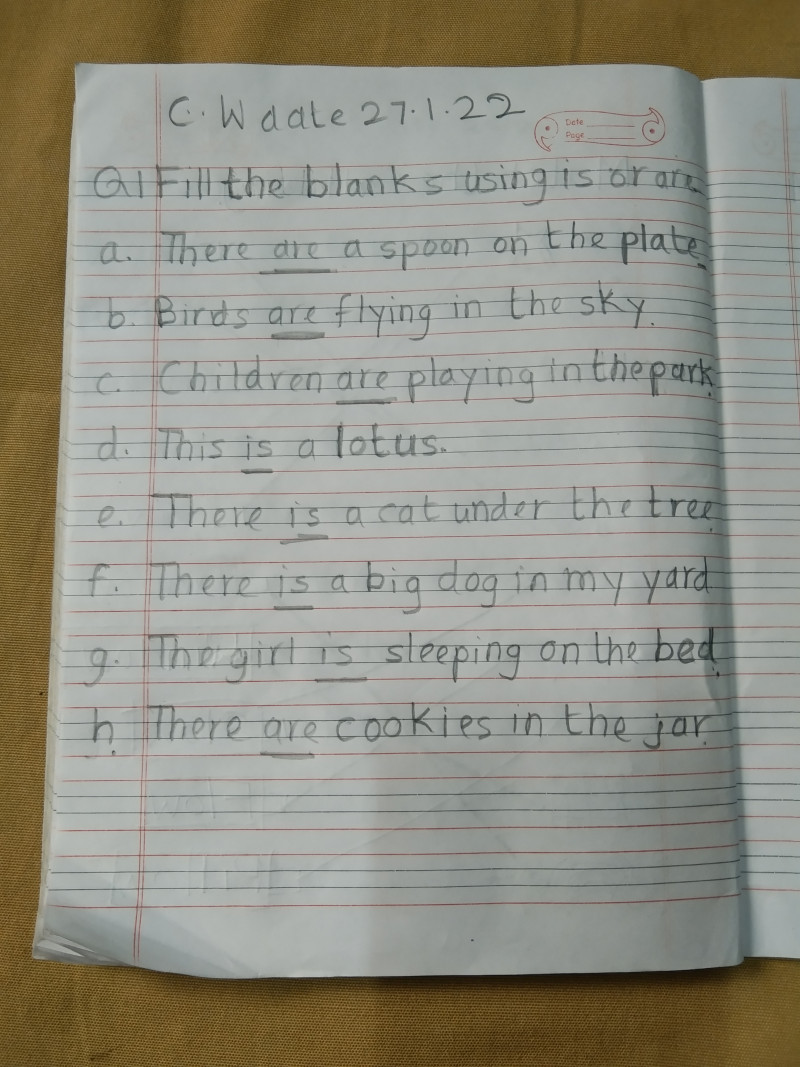 C.W date 27.1.22
Date
Page
Q1 Fill the blanks using is or are
a. There are a spoon on the plate.
b. Birds are flying in the sky.
c. Children are playing in the park.
d. This is a lotus.
e. There is a cat under the tree.
f. There is a big dog in my yard
g. The girl is sleeping on the bed.
h. There are cookies in the jar.